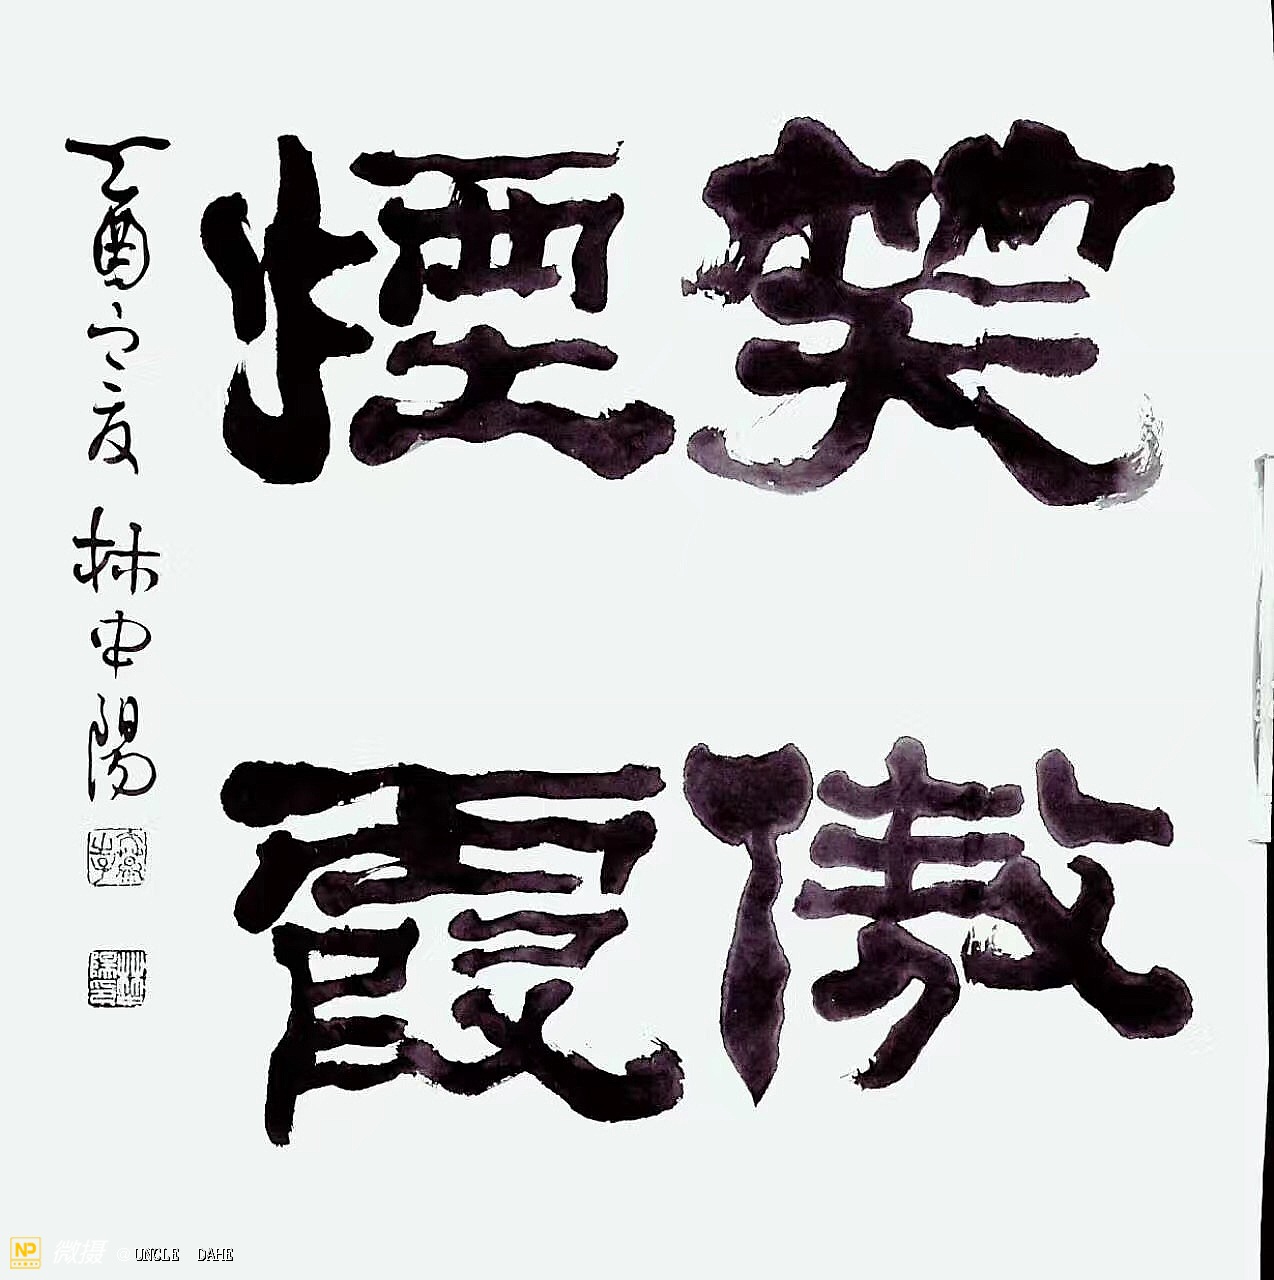 笑傲
煙霞
丁酉之夏 林中陽
NP 微摄 © UNCLE DAHE